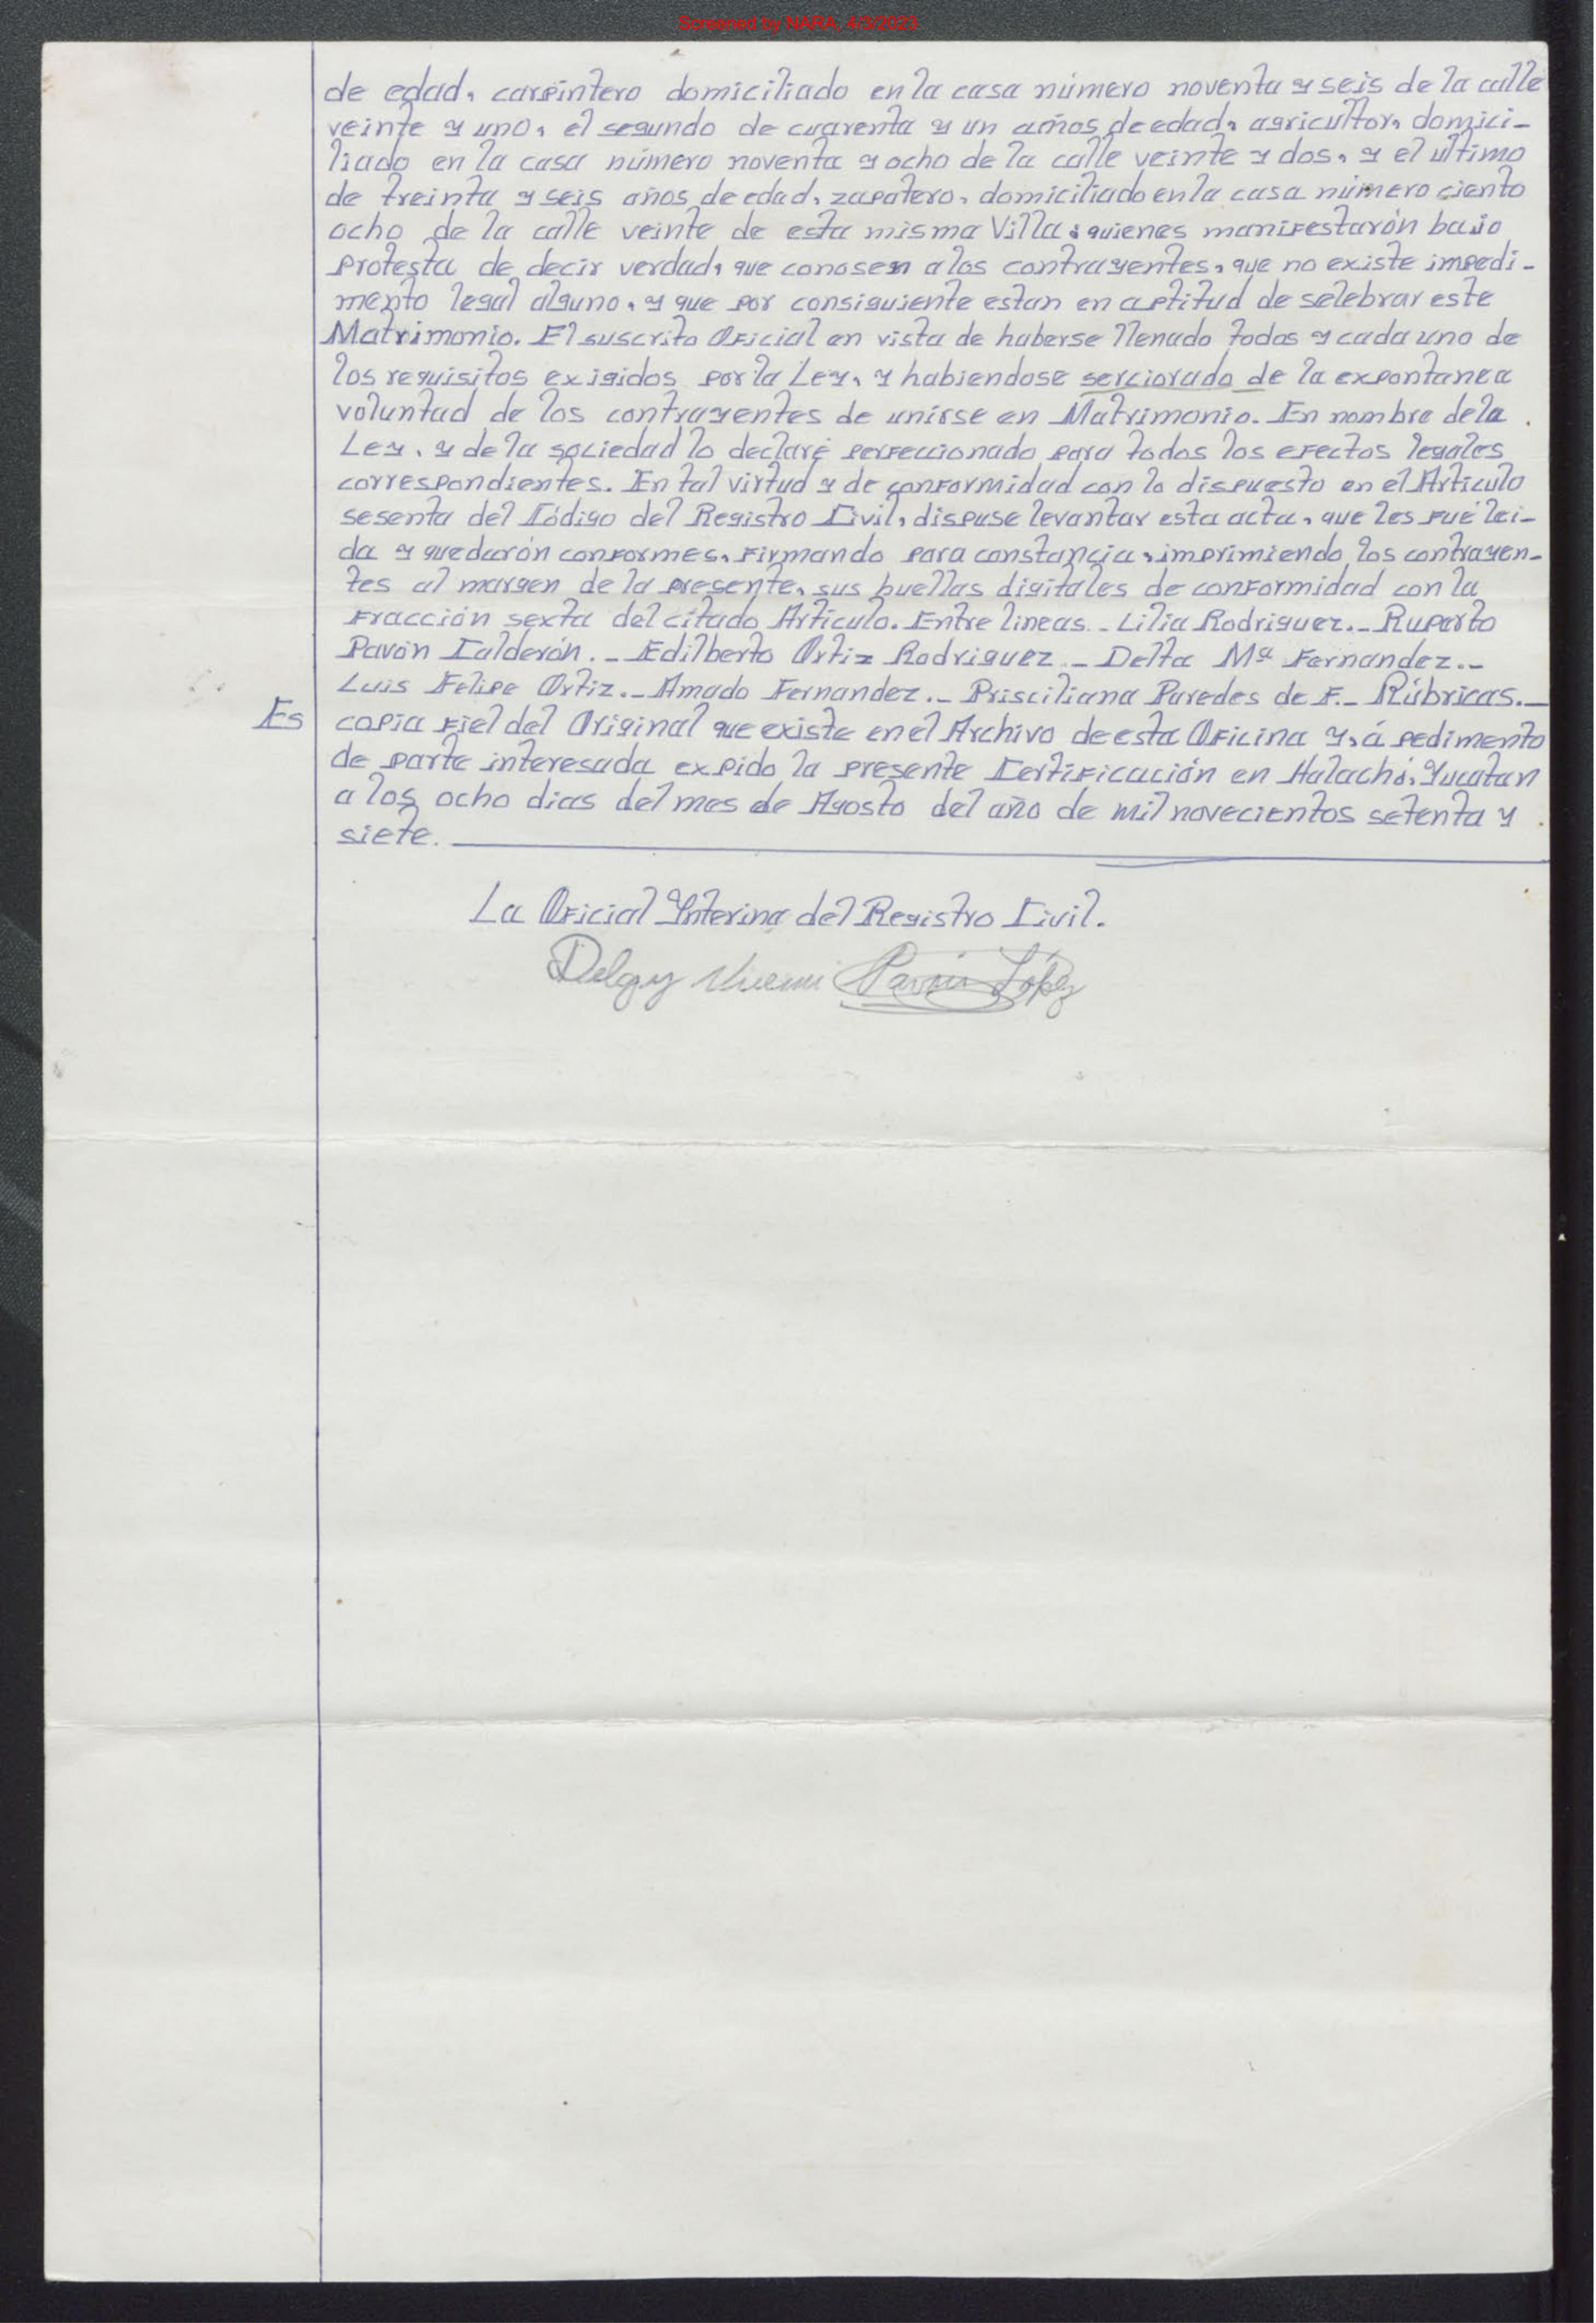 Screened by NARA, 4/3/2023
de edad, carpintero domiciliado en la casa número noventa y seis de la calle
veinte y uno, el segundo de cuarenta y un años de edad, agricultor, domici-
liado en la casa número noventa y ocho de la calle veinte y dos, y el ultimo
de treinta y seis años de edad, zapatero, domiciliado en la casa número ciento
ocho de la calle veinte de esta misma Villa; quienes manifestarón bajo
protesta de decir verdad, que conosen a los contrayentes, que no existe impedi-
mento legal alguno, y que por consiguiente estan en aptitud de selebrar este
Matrimonio. El suscrito Oficial en vista de haberse llenado todos y cada uno de
los requisitos exigidos por la Ley, y habiendose serciorado de la expontanea
voluntad de los contrayentes de unirse en Matrimonio. En nombre de la
Ley, y de la sociedad lo declaré perfeccionado para todos los efectos legales
correspondientes. En tal virtud y de conformidad con lo dispuesto en el Artículo
sesenta del Código del Registro Civil, dispuse levantar esta acta, que les fué lei-
da y quedarón conformes, firmando para constancia, imprimiendo los contrayen-
tes al margen de la presente, sus huellas digitales de conformidad con la
Fracción sexta del citado Artículo. Entre lineas.- Lilia Rodriguez.- Ruperto
Pavón Calderón.- Edilberto Ortiz Rodriguez.- Delta Mª Fernandez.-
Luis Felipe Ortiz.- Amado Fernandez.- Prisciliana Paredes de F.- Rúbricas.-
Es copia fiel del Original que existe en el Archivo de esta Oficina y, á pedimento
de parte interesada expido la presente Certificación en Halachó, Yucatan
a los ocho dias del mes de Agosto del año de mil novecientos setenta y
siete.
La Oficial Interina del Registro Civil.
Pavón López